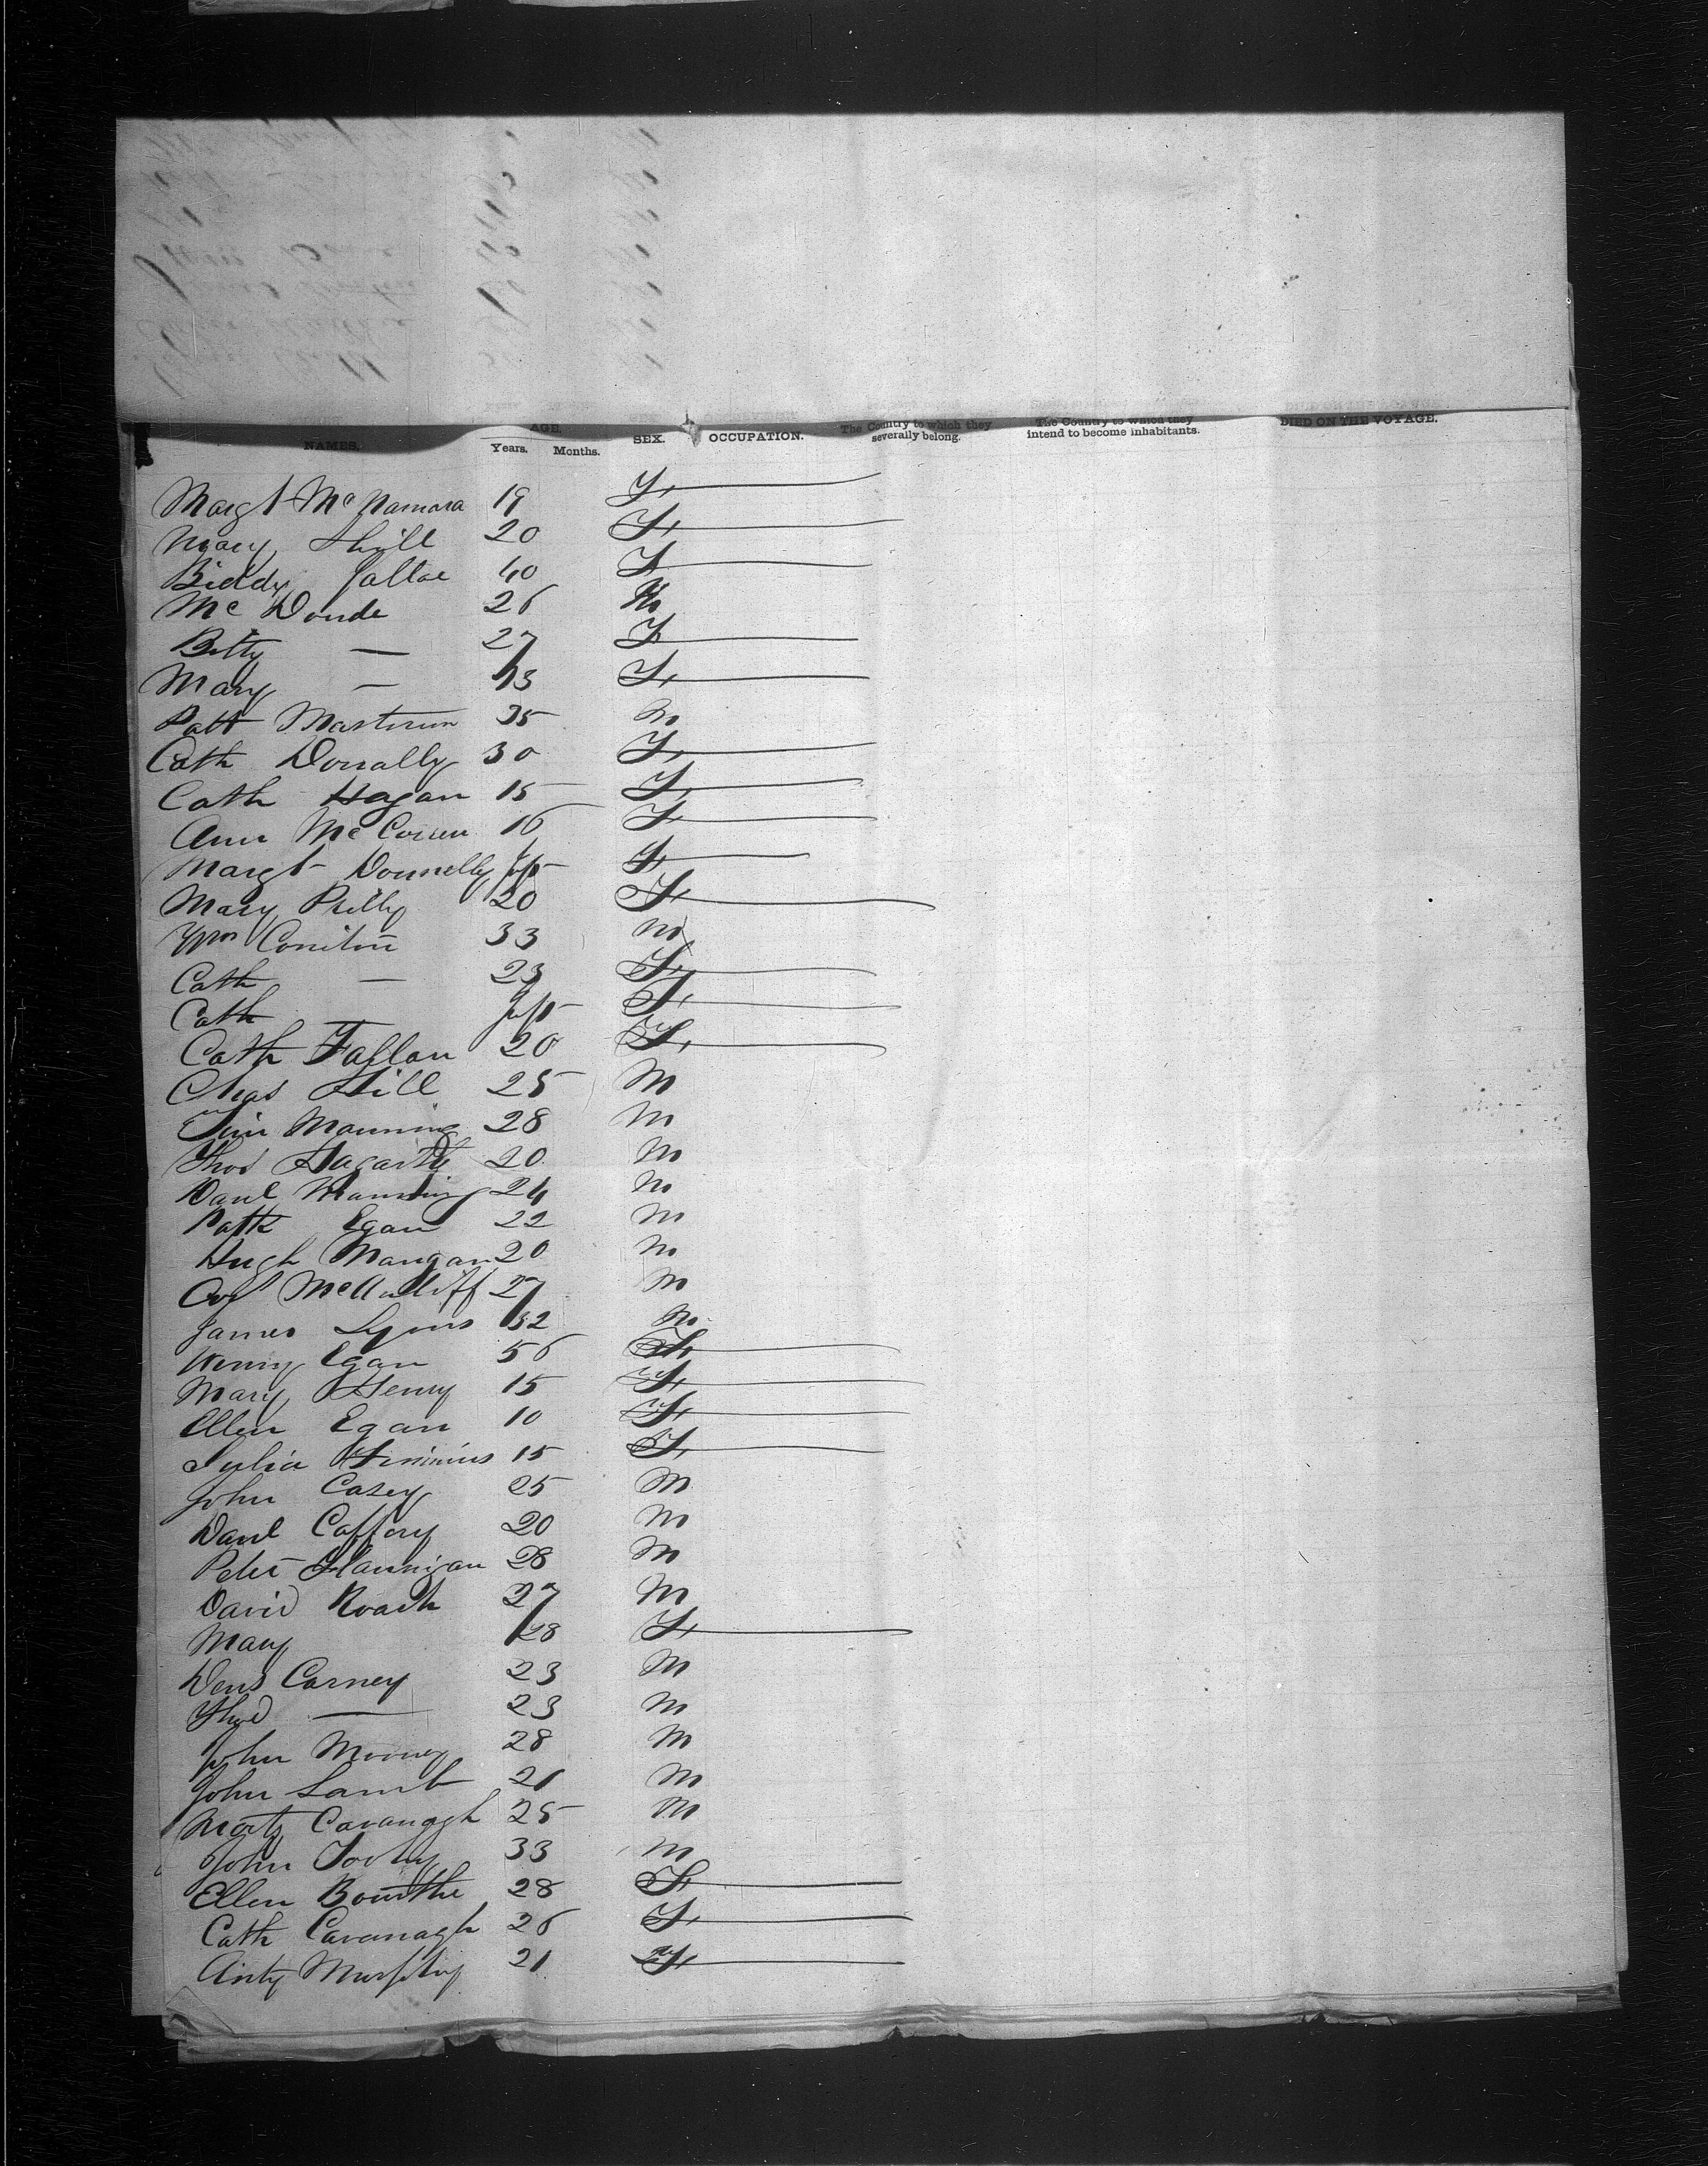 NAMES. AGE, Years. Months. SEX. OCCUPATION. The Country to which they severally belong. The Country to which they intend to become inhabitants. DIED ON THE VOYAGE.
Margt McNamara 19 F
Mary 20 F
Biddy 40 F
Mc 26 M
Betty — 27 F
Mary — 13 F
Patt 35 M
Cath Donally 30 F
Cath Hagan 15 F
Ann 16 F
Margt Donnelly Inft F
Mary 20 F
Wm 33 M
Cath — 23 F
Cath — Inft F
Cath Fallan 20 F
Chas Hill 25 M
Tim Manning 28 M
Thos Hagarty 20 M
Danl Manning 24 M
Patk Egan 22 M
Hugh Mangan 20 M
McAuliff 27 M
James Lyons 32 M
Winny Egan 56 F
Mary Henry 15 F
Ellen Egan 10 F
Julia 15 F
John Casey 25 M
Danl Caffory 20 M
Peter Flannigan 28 M
David Roach 27 M
Mary 28 F
Dens Carney 23 M
Thos — 23 M
John Mooney 28 M
John Lamb 21 M
Matt Cavanagh 25 M
John 33 M
Ellen 28 F
Cath Cavanagh 26 F
Murphy 21 F